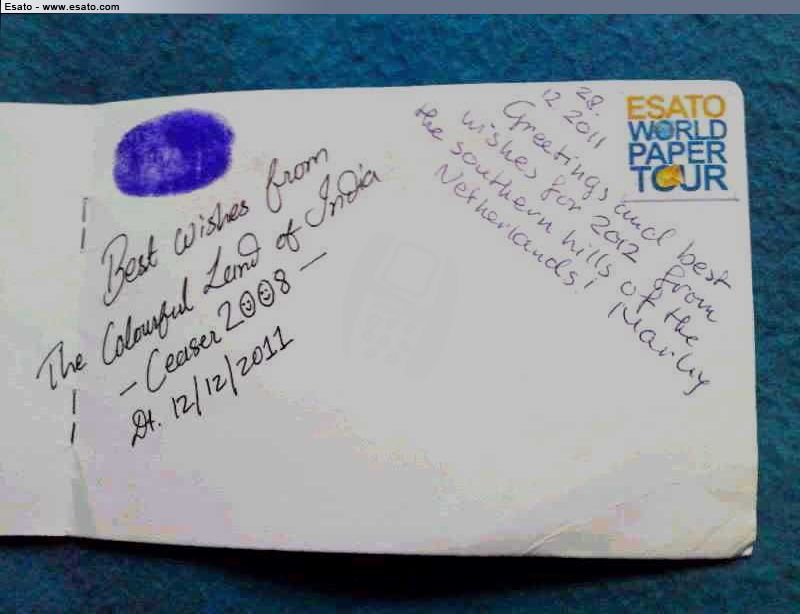 Esato - www.esato.com
Best Wishes from
The Colourful Land of India
- Ceaser 2008 -
Dt. 12/12/2011
28.
12 2011
Greetings and best
wishes for 2012 from
the southern hills of the
Netherlands!
ESATO
WORLD
PAPER
TOUR